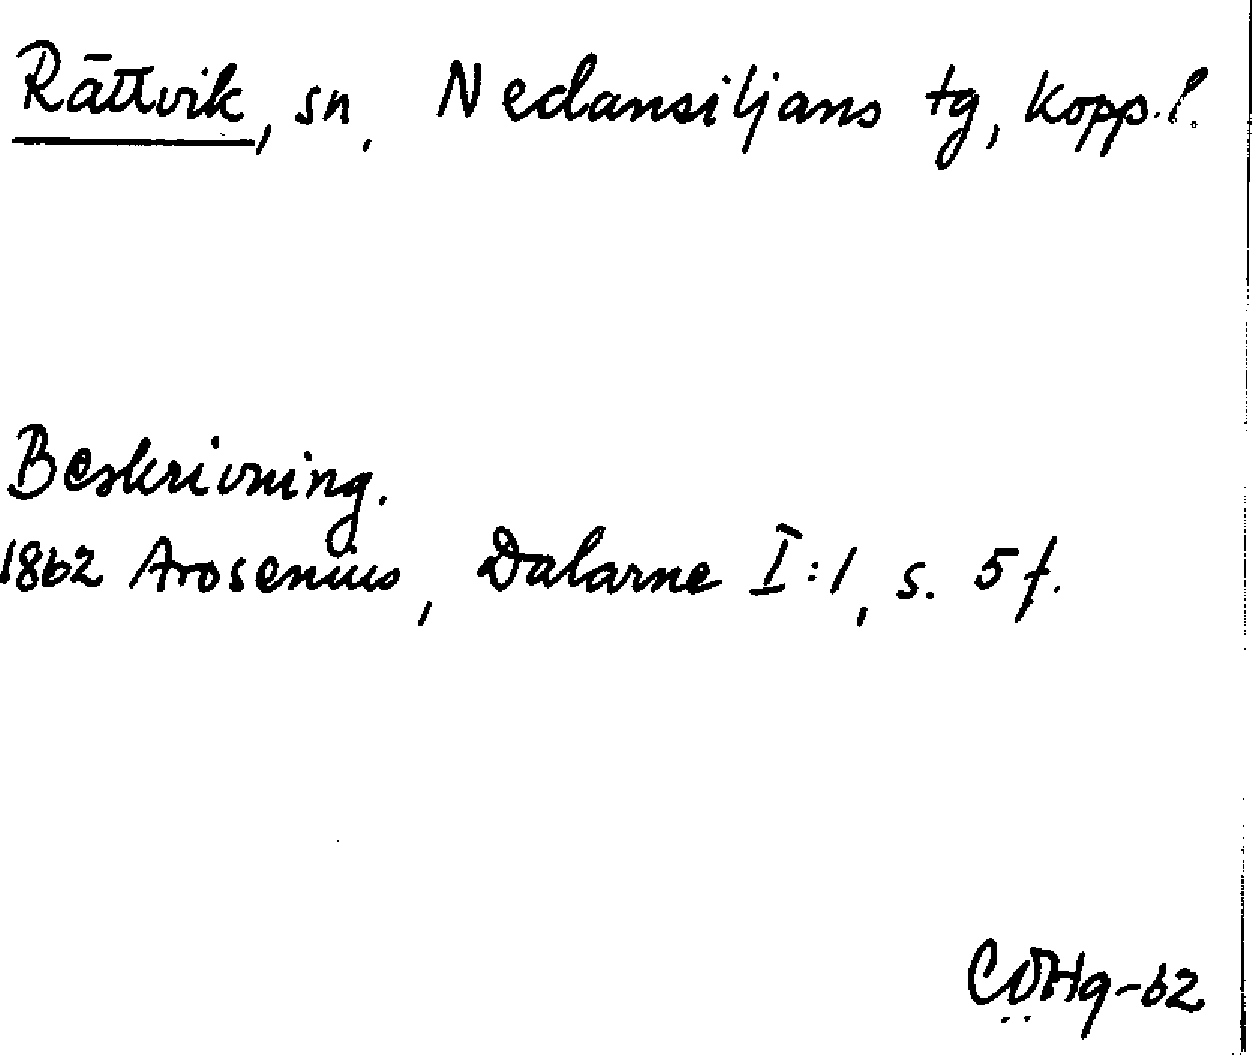 Rättvik, sn. Nedansiljans tg, Kopp.l.
Beskrivning.
1862 Arosenius, Dalarne I:1, s. 5 f.